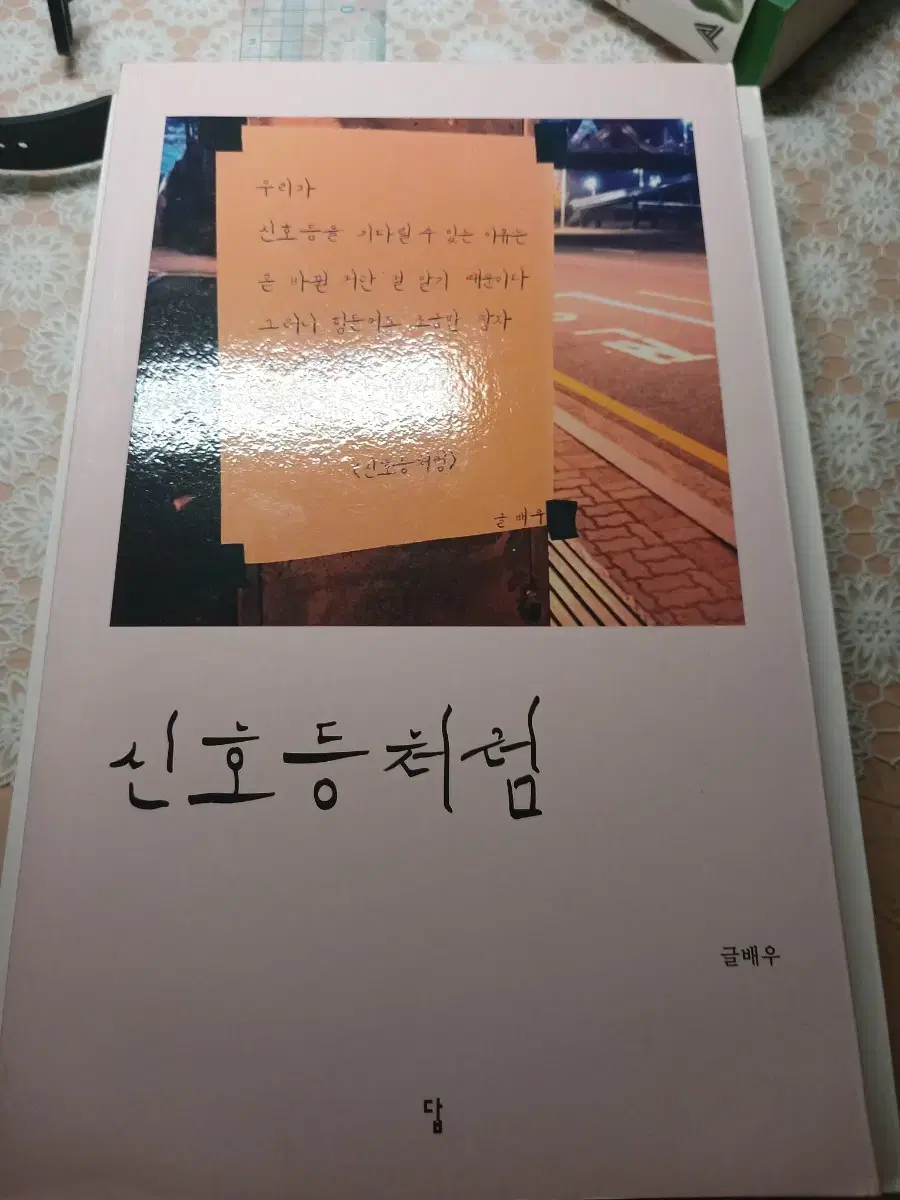 우리가
신호등을 기다릴 수 있는 이유는
곧 바뀔 거란 걸 알기 때문이다
그러니 힘들어도 조금만 참자
<신호등처럼>
글배우
신호등처럼
글배우
답